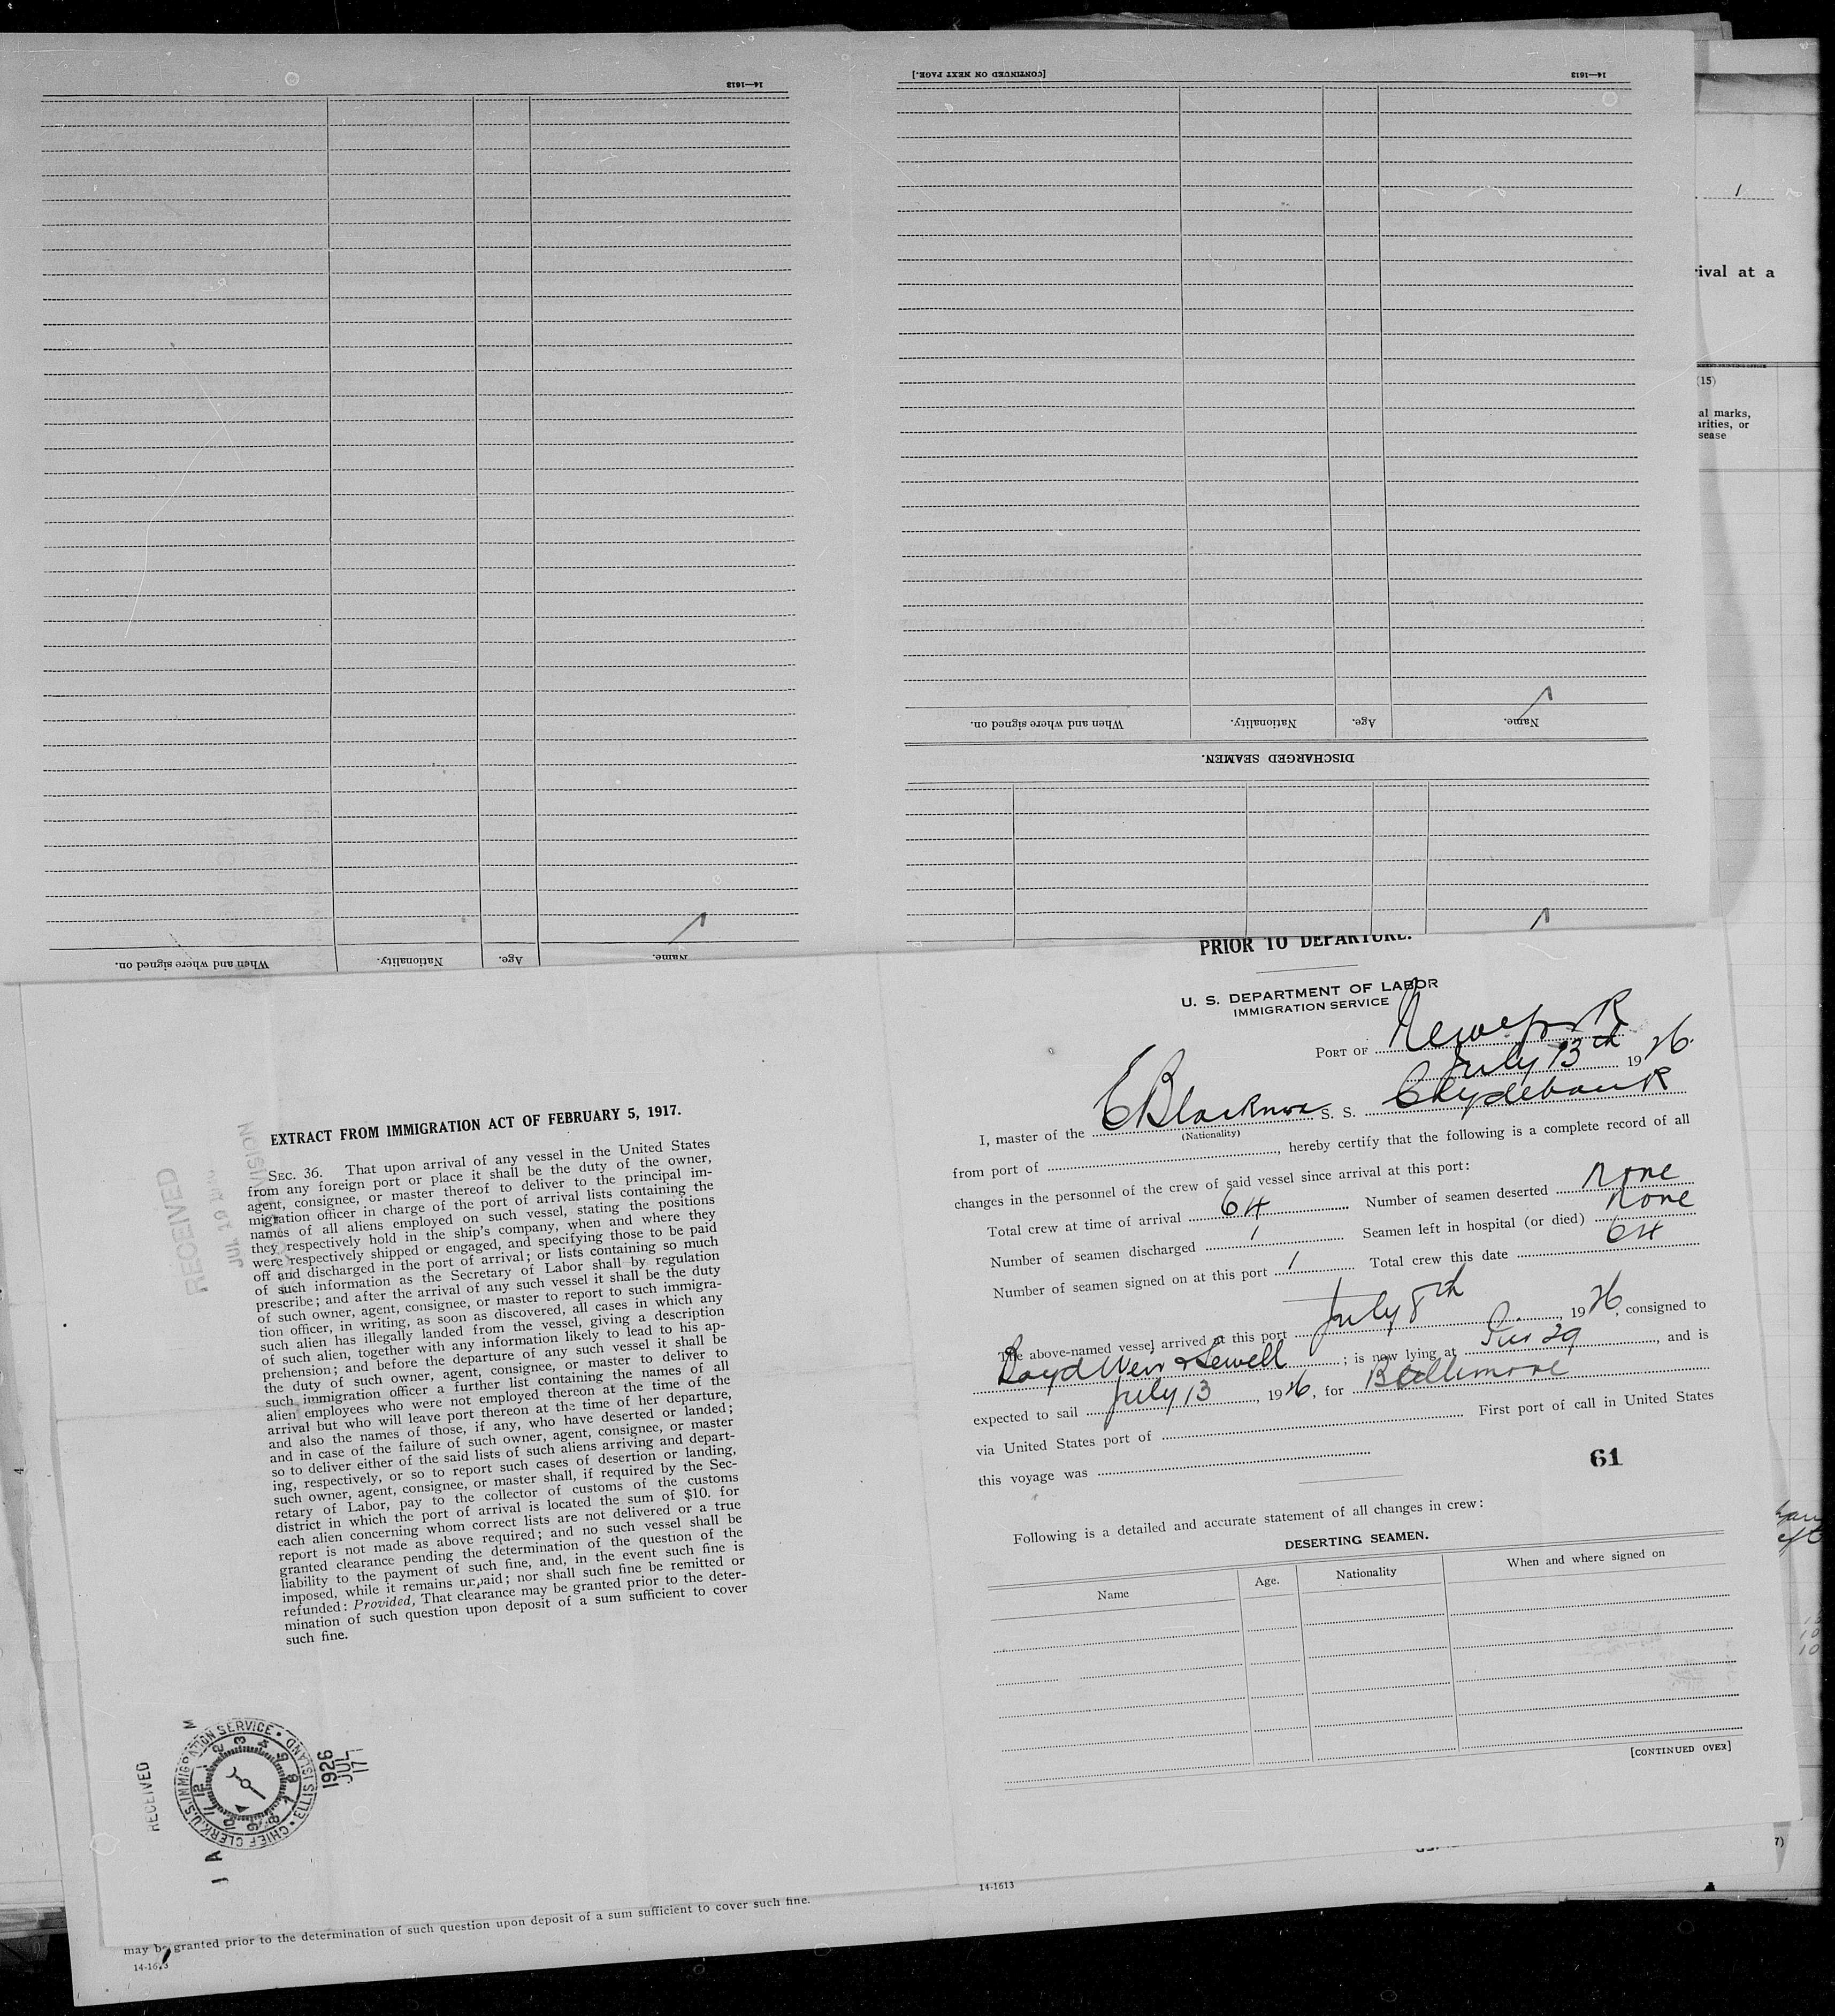 14—1613
[CONTINUED ON NEXT PAGE.]
14—1613
When and where signed on. Nationality. Age. Name.
DISCHARGED SEAMEN.
When and where signed on. Nationality. Age. Name.
1
rival at a
(15)
al marks,
arities, or
sease
PRIOR TO DEPARTURE.
U. S. DEPARTMENT OF LABOR
IMMIGRATION SERVICE
PORT OF
July 13th 1926.
I, master of the S. S. Clydebank
(Nationality)
from port of , hereby certify that the following is a complete record of all
changes in the personnel of the crew of said vessel since arrival at this port:
Total crew at time of arrival 64 Number of seamen deserted None
Number of seamen discharged 1 Seamen left in hospital (or died) None
Number of seamen signed on at this port 1 Total crew this date 64
The above-named vessel arrived at this port July 8th, 1926, consigned to
Boyd Weir & Sewell; is now lying at Pier 29, and is
expected to sail July 13, 1926, for Baltimore
via United States port of First port of call in United States
this voyage was
61
Following is a detailed and accurate statement of all changes in crew:
DESERTING SEAMEN.
Name Age. Nationality When and where signed on
[CONTINUED OVER]
14-1613
EXTRACT FROM IMMIGRATION ACT OF FEBRUARY 5, 1917.
SEC. 36. That upon arrival of any vessel in the United States
from any foreign port or place it shall be the duty of the owner,
agent, consignee, or master thereof to deliver to the principal im-
migration officer in charge of the port of arrival lists containing the
names of all aliens employed on such vessel, stating the positions
they respectively hold in the ship's company, when and where they
were respectively shipped or engaged, and specifying those to be paid
off and discharged in the port of arrival; or lists containing so much
of such information as the Secretary of Labor shall by regulation
prescribe; and after the arrival of any such vessel it shall be the duty
of such owner, agent, consignee, or master to report to such immigra-
tion officer, in writing, as soon as discovered, all cases in which any
such alien has illegally landed from the vessel, giving a description
of such alien, together with any information likely to lead to his ap-
prehension; and before the departure of any such vessel it shall be
the duty of such owner, agent, consignee, or master to deliver to
such immigration officer a further list containing the names of all
alien employees who were not employed thereon at the time of the
arrival but who will leave port thereon at the time of her departure,
and also the names of those, if any, who have deserted or landed;
and in case of the failure of such owner, agent, consignee, or master
so to deliver either of the said lists of such aliens arriving and depart-
ing, respectively, or so to report such cases of desertion or landing,
such owner, agent, consignee, or master shall, if required by the Sec-
retary of Labor, pay to the collector of customs of the customs
district in which the port of arrival is located the sum of $10. for
each alien concerning whom correct lists are not delivered or a true
report is not made as above required; and no such vessel shall be
granted clearance pending the determination of the question of the
liability to the payment of such fine, and, in the event such fine is
imposed, while it remains unpaid; nor shall such fine be remitted or
refunded: Provided, That clearance may be granted prior to the deter-
mination of such question upon deposit of a sum sufficient to cover
such fine.
RECEIVED
RECEIVED
CHIEF CLERK, U.S. IMMIGRATION SERVICE • ELLIS ISLAND •
1926
JUL
17
may be granted prior to the determination of such question upon deposit of a sum sufficient to cover such fine.
14-1613